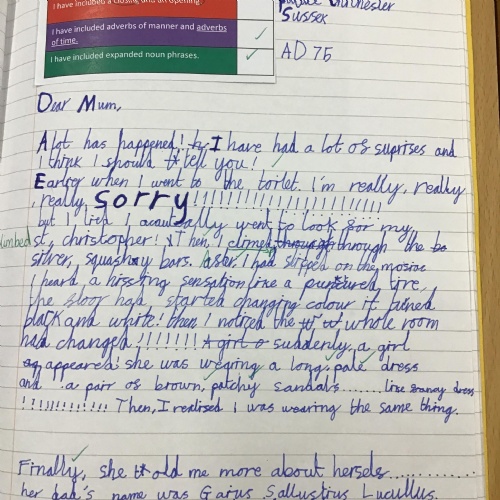 I have included a closing and an opening
I have included adverbs of manner and adverbs of time.
I have included expanded noun phrases.
Chichester
Sussex
AD 75
Dear Mum,
A lot has happened! I have had a lot of suprises and
I think I should tell you!
Earlier when I went to the toilet. I'm really, really
,really, sorry!!!!!!!!!!!!!!!!!!!!!!!!!!!
but I lied I acautsally went to look for my
st, christopher! Then, I climed through through the
silver, squashay bars. later I had slipped on the mosiac
I heard, a hissing sensation like a puntured tire,
the floor had started changing colour it turned
black and white! then I noticed the whole room
had changed!!!!!!! suddenly, a girl
appeared! she was wearing a long, pale dress
and a pair of brown, patchy sandals...... like dress
!!!!!!!!!!! Then, I realised I was wearing the same thing.
Finally, she told me more about herself............
her dad's name was Gaius Sallustius Lucullus.